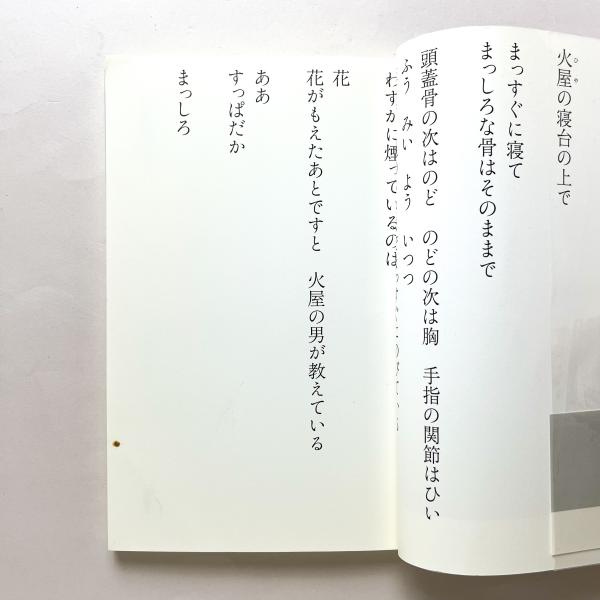 火屋の寝台の上で
まっすぐに寝て
まっしろな骨はそのままで
頭蓋骨の次はのど　のどの次は胸　手指の関節はひい
ふう　みい　よう　いつつ
わずかに煙っているのは
花
花がもえたあとですと　火屋の男が教えている
ああ
すっぱだか
まっしろ